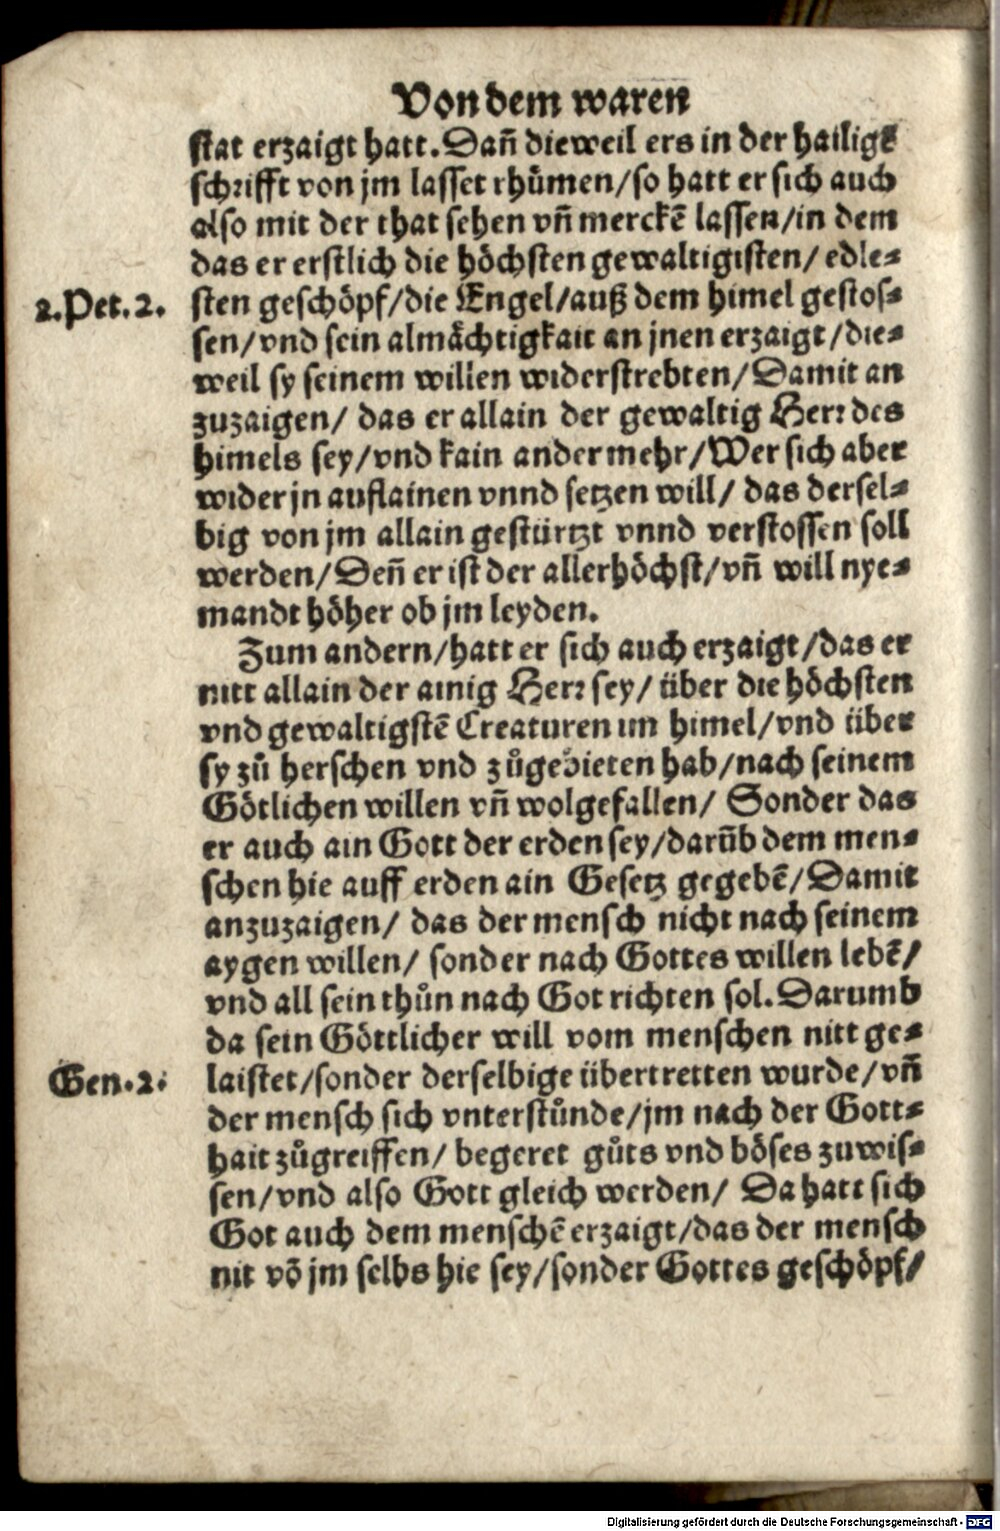 Von dem waren
stat erzaigt hatt. Dañ dieweil ers in der hailigē
schrifft von jm lasset rhůmen/so hatt er sich auch
also mit der that sehen vñ merckē lassen/in dem
das er erstlich die höchsten gewaltigisten/ edle⸗
2.Pet.2. sten geschöpf/die Engel/auß dem himel gestos⸗
sen/vnd sein almächtigkait an jnen erzaigt/die⸗
weil sy seinem willen widerstrebten/ Damit an
zuzaigen/ das er allain der gewaltig Herr des
himels sey/vnd kain ander mehr/Wer sich aber
wider jn auflainen vnnd setzen will/ das dersel⸗
big von jm allain gestürtzt vnnd verstossen soll
werden/Deñ er ist der allerhöchst/vñ will nye⸗
mandt höher ob jm leyden.
Zum andern/hatt er sich auch erzaigt/das er
nitt allain der ainig Herr sey/ über die höchsten
vnd gewaltigstē Creaturen im himel/vnd über
sy zů herschen vnd zůgebieten hab/nach seinem
Götlichen willen vñ wolgefallen/ Sonder das
er auch ain Gott der erden sey/darūb dem men⸗
schen hie auff erden ain Gesetz gegebē/Damit
anzuzaigen/ das der mensch nicht nach seinem
aygen willen/ sonder nach Gottes willen lebē/
vnd all sein thůn nach Got richten sol. Darumb
da sein Göttlicher will vom menschen nitt ge⸗
Gen.2. laistet/sonder derselbige übertretten wurde/vñ
der mensch sich vnterstůnde/jm nach der Gott⸗
hait zůgreiffen/ begeret gůts vnd böses zuwis⸗
sen/vnd also Gott gleich werden/ Da hatt sich
Got auch dem menschē erzaigt/das der mensch
nit vō jm selbs hie sey/sonder Gottes geschöpf/
Digitalisierung gefördert durch die Deutsche Forschungsgemeinschaft - DFG